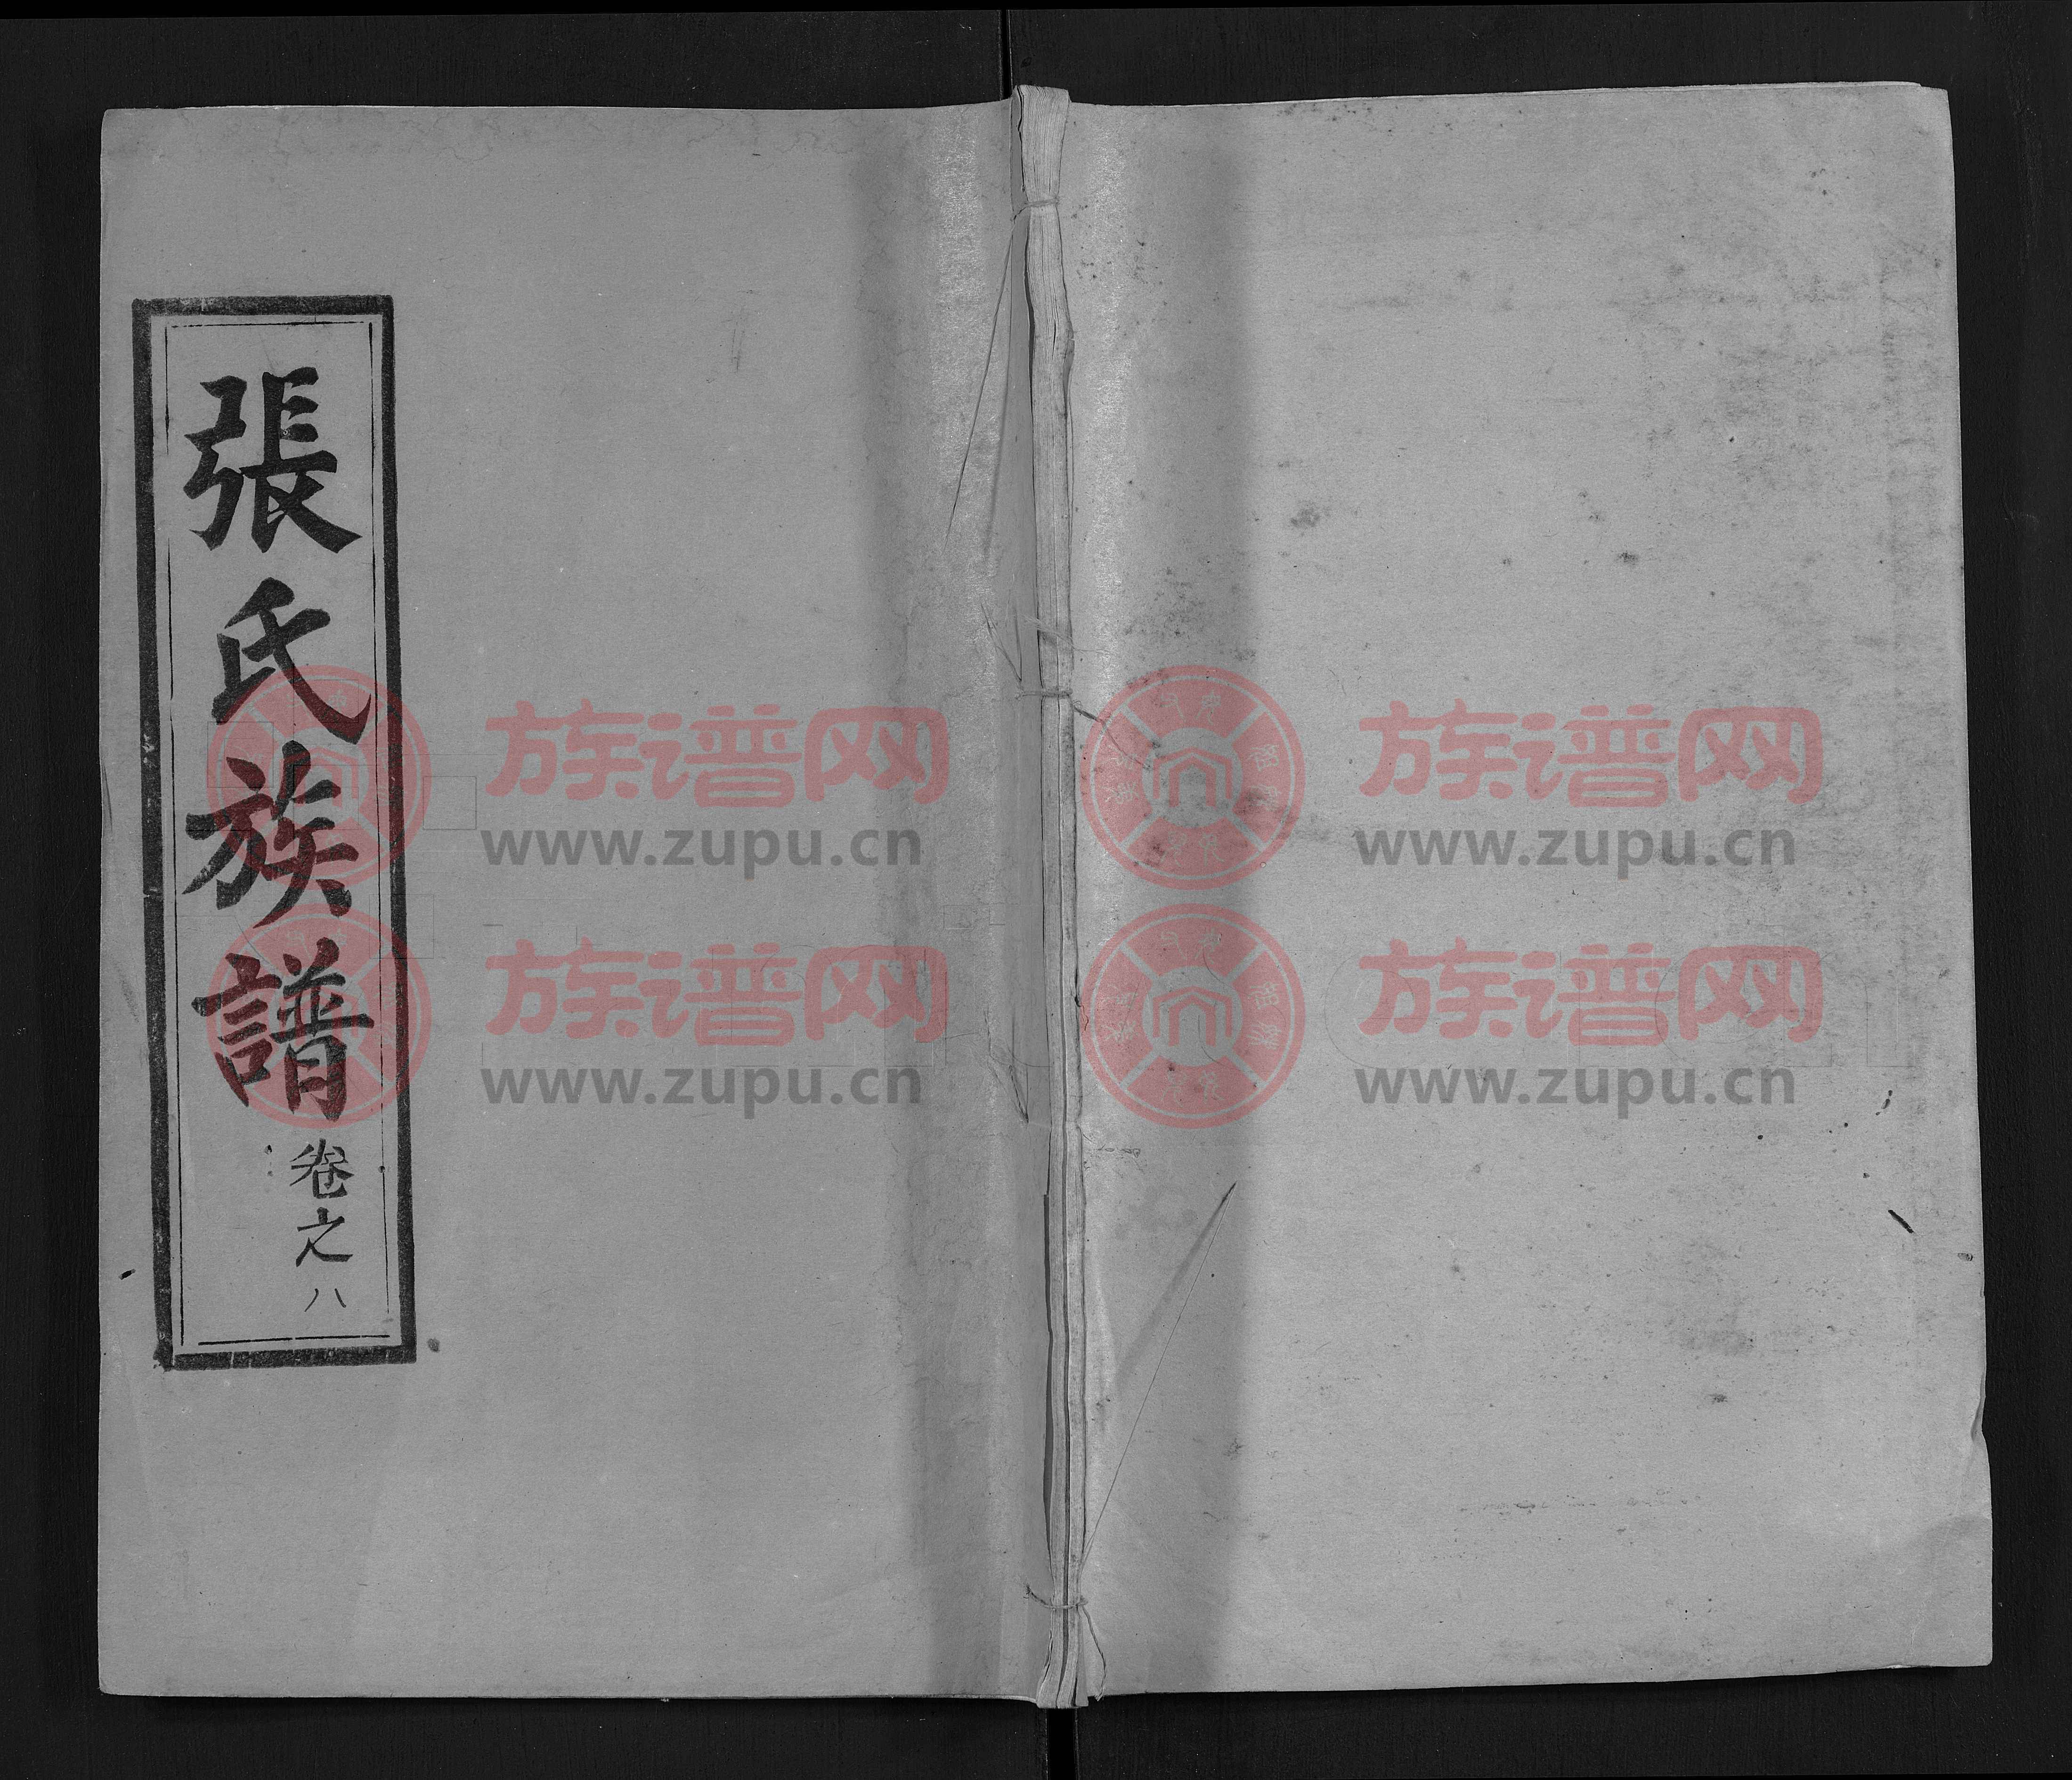 張氏族譜
卷之八
族谱网
www.zupu.cn
族谱网
www.zupu.cn
族谱网
www.zupu.cn
族谱网
www.zupu.cn